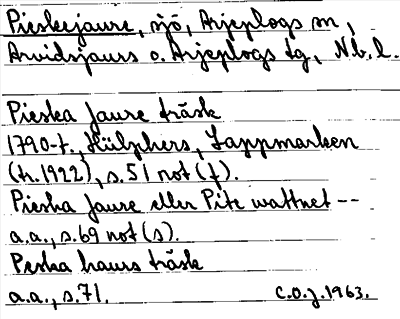 Pieskejaure, sjö, Arjeplogs sn,
Arvidsjaurs o. Arjeplogs tg, Nb.l.
Pieska Jaure träsk
1790-t., Hülphers, Lappmarken
(tr.1922), s.51 not (f).
Pieska Jaure eller Pite wattnet --
a.a., s.69 not (s).
Peska haurs träsk
a.a., s.71. C.O.J.1963.